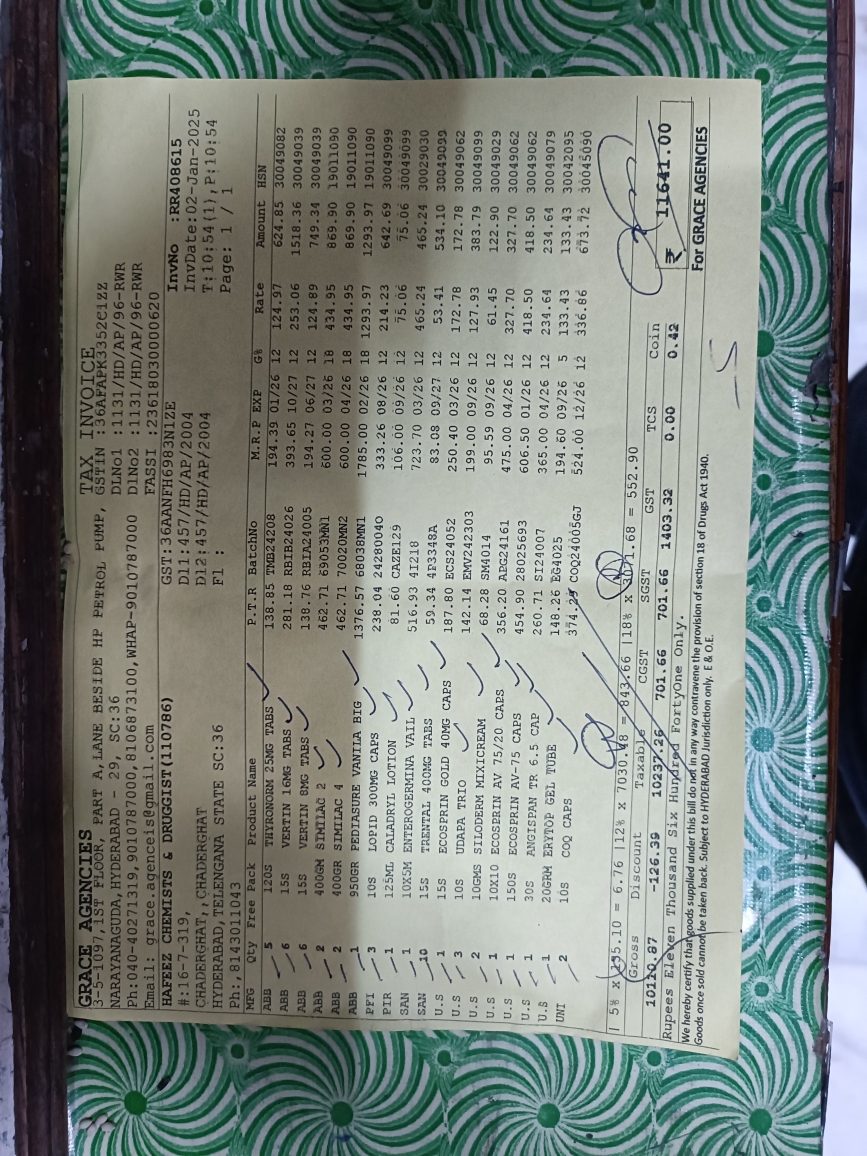 GRACE AGENCIES TAX INVOICE
3-5-1097,1ST FLOOR, PART A,LANE BESIDE HP PETROL PUMP, GSTIN :36AFAPK3352C1ZZ
NARAYANAGUDA,HYDERABAD - 29, SC:36 DLNo1 :1131/HD/AP/96-RWR
Ph:040-40271319,9010787000,8106873100,WHAP-9010787000 DlNo2 :1131/HD/AP/96-RWR
Email: grace.agenceis@gmail.com FASSI :23618030000620
HAFEEZ CHEMISTS & DRUGGIST(110786) GST:36AANFH6983N1ZE InvNo :RR408615
#:16-7-319, D11:457/HD/AP/2004 InvDate:02-Jan-2025
CHADERGHAT,,CHADERGHAT D12:457/HD/AP/2004 T:10:54(1),P:10:54
HYDERABAD,TELENGANA STATE SC:36 Fl : Page: 1 / 1
Ph:,8143011043
MFG Qty Free Pack Product Name P.T.R BatchNo M.R.P EXP G% Rate Amount HSN
ABB 5 120S THYRONORM 25MG TABS 138.85 TMB24208 194.39 01/26 12 124.97 624.85 30049082
ABB 6 15S VERTIN 16MG TABS 281.18 RBIB24026 393.65 10/27 12 253.06 1518.36 30049039
ABB 6 15S VERTIN 8MG TABS 138.76 RBIA24005 194.27 06/27 12 124.89 749.34 30049039
ABB 2 400GM SIMILAC 2 462.71 69053MN1 600.00 03/26 18 434.95 869.90 19011090
ABB 2 400GR SIMILAC 4 462.71 70020MN2 600.00 04/26 18 434.95 869.90 19011090
ABB 1 950GR PEDIASURE VANILA BIG 1376.57 68038MN1 1785.00 02/26 18 1293.97 1293.97 19011090
PFI 3 10S LOPID 300MG CAPS 238.04 24280040 333.26 08/26 12 214.23 642.69 30049099
PIR 1 125ML CALADRYL LOTION 81.60 CAZE129 106.00 09/26 12 75.06 75.06 30049099
SAN 1 10X5M ENTEROGERMINA VAIL 516.93 4I218 723.70 03/26 12 465.24 465.24 30029030
SAN 10 15S TRENTAL 400MG TABS 59.34 4P3348A 83.08 09/27 12 53.41 534.10 30049099
U.S 1 15S ECOSPRIN GOLD 40MG CAPS 187.80 ECS24052 250.40 03/26 12 172.78 172.78 30049062
U.S 3 10S UDAPA TRIO 142.14 EMV242303 199.00 09/26 12 127.93 383.79 30049099
U.S 2 10GMS SILODERM MIXICREAM 68.28 SM4014 95.59 09/26 12 61.45 122.90 30049029
U.S 1 10X10 ECOSPRIN AV 75/20 CAPS 356.20 APG24161 475.00 04/26 12 327.70 327.70 30049062
U.S 1 150S ECOSPRIN AV-75 CAPS 454.90 28025693 606.50 01/26 12 418.50 418.50 30049062
U.S 1 30S ANGISPAN TR 6.5 CAP 260.71 SI24007 365.00 04/26 12 234.64 234.64 30049079
U.S 1 20GRM ERYTOP GEL TUBE 148.26 EG4025 194.60 09/26 5 133.43 133.43 30042095
UNI 2 10S COQ CAPS 374.29 COQ24005GJ 524.00 12/26 12 336.86 673.72 30045090
| 5% x 135.10 = 6.76 |12% x 7030.48 = 843.66 |18% x 3071.68 = 552.90
Gross Discount Taxable CGST SGST GST TCS Coin
10110.87 -126.39 10237.26 701.66 701.66 1403.32 0.00 0.42 ₹ 11641.00
Rupees Eleven Thousand Six Hundred FortyOne Only.
We hereby certify that goods supplied under this bill do not in any way contravene the provision of section 18 of Drugs Act 1940.
Goods once sold cannot be taken back. Subject to HYDERABAD Jurisdiction only. E & O.E. For GRACE AGENCIES